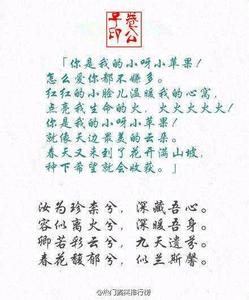 「你是我的小呀小苹果!
怎么爱你都不嫌多。
红红的小脸儿温暖我的心窝,
点亮我生命的火,火火火火火!
你是我的小呀小苹果!
就像天边最美的云朵。
春天又来到了花开满山坡,
种下希望就会收获。」
汝为珍柰兮,深藏吾心。
容似离火兮,深暖吾身。
卿若彩云兮,九天遗。
春花馥郁兮,似兰斯馨。
@热门搞笑排行榜